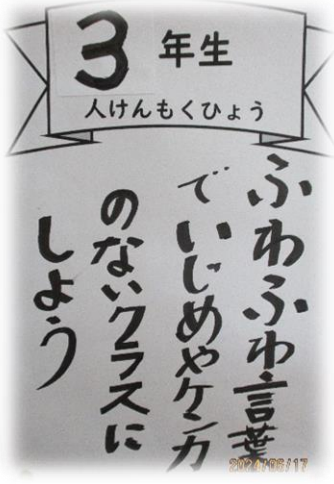 3年生
人けんもくひょう
ふわふわ言葉
でいじめやケンカ
のないクラスに
しよう
2024/06/17